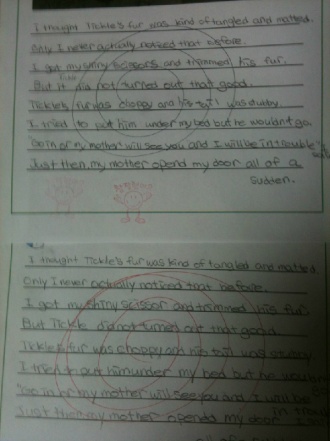 I thought Tickle's fur was kind of tangled and matted.
Only I never actually noticed that before.
I got my shiny scissors and trimmed his fur.
But it did not turned out that good.
Tickle's fur was choppy and his tail was stubby.
I tried to put him under my bed but he wouldnt go.
in or my mother will see you and I will be in trouble
Just then, my mother opend my door all of a
sudten.
I thought Tickle's fur was kind of tangled and matted.
Only I never actually noticed that before.
I got my shiny scissor and trimmed his fur.
But Tickle did not turned out that good.
Tickle's fur was choppy and his tail was stubby.
I tried to put him under my bed but he
in or my mother will see you and I will be
Just then my mother opends my door